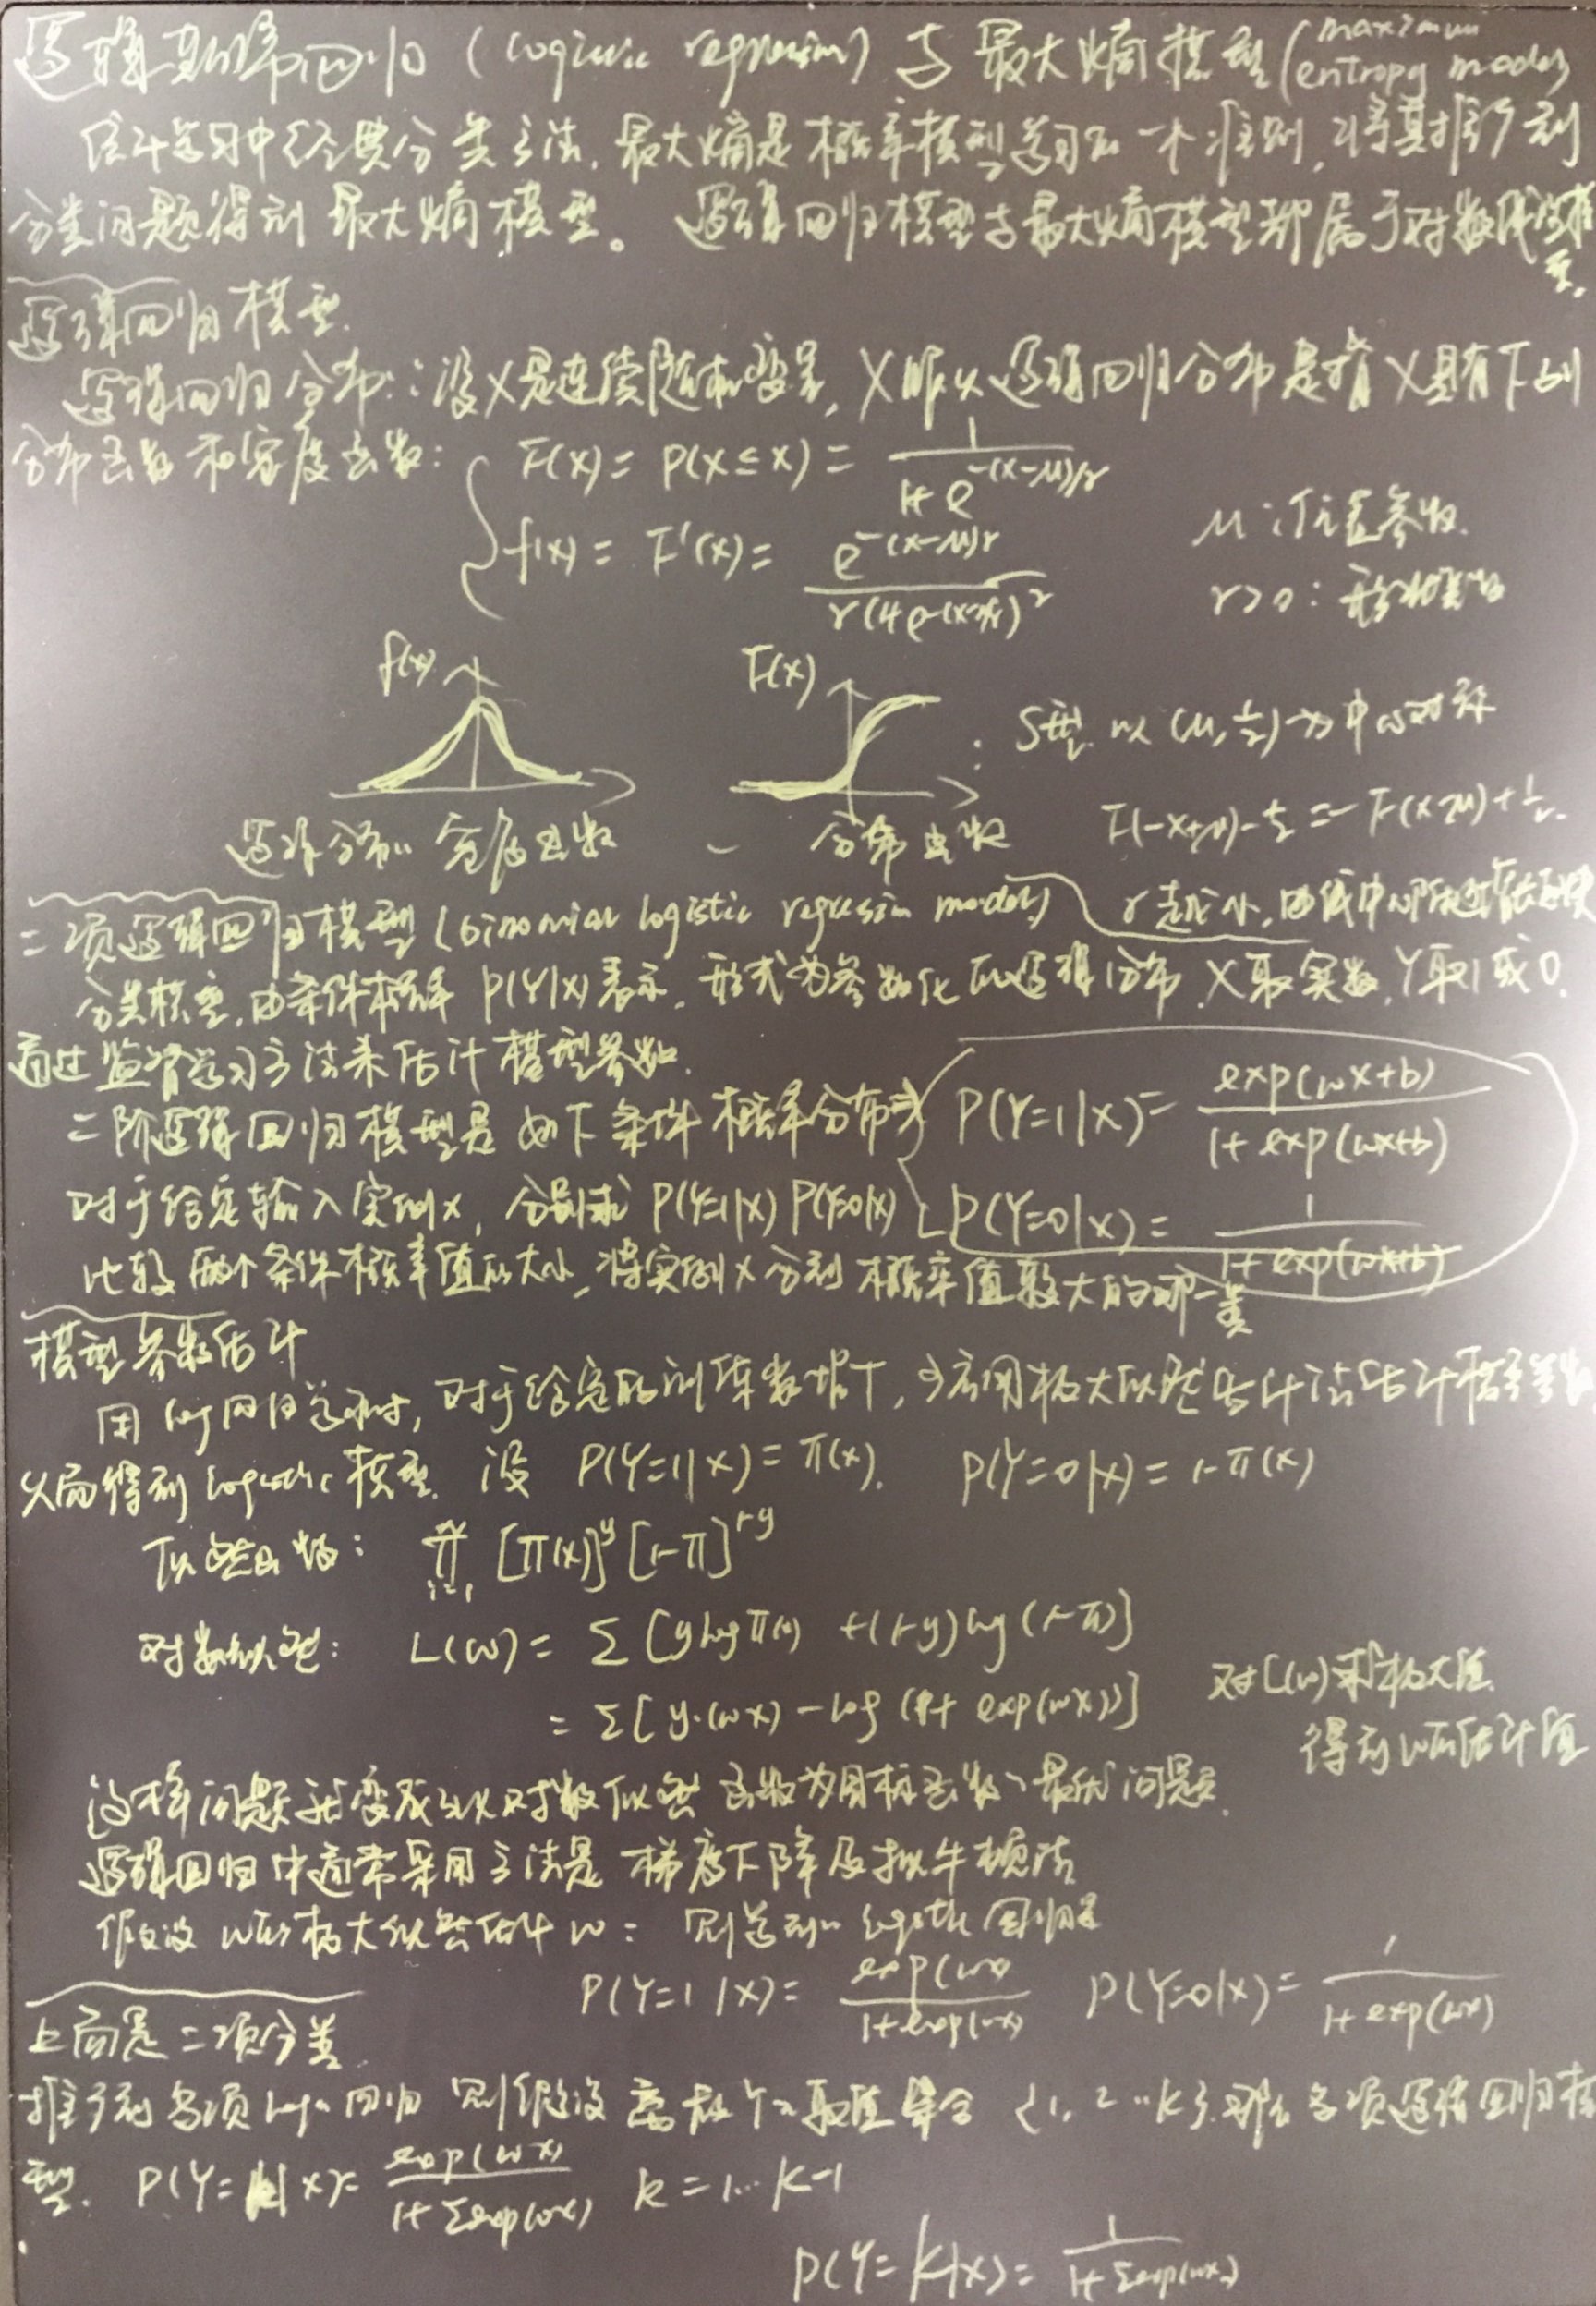 逻辑斯谛回归 (logistic regression) 与 最大熵模型 (maximum entropy model)
统计学习中经典分类方法, 最大熵是概率模型学习的一个准则, 将其推广到
分类问题得到最大熵模型。 逻辑回归模型与最大熵模型都属于对数线性模型.
逻辑回归模型.
逻辑回归分布: 设X是连续随机变量, X服从逻辑回归分布是指X具有下列
分布函数和密度函数: F(x) = P(X≤x) = 1 / 1+e^-(x-μ)/r
f(x) = F'(x) = e^-(x-μ)r / r(1+e^-(x-μ)/r)^2
μ: 位置参数.
r>0: 形状参数
f(x) F(x)
: S型 以(μ, 1/2)为中心对称
逻辑分布的密度函数 ~ 分布函数
F(-x+μ) - 1/2 = -F(x-μ) + 1/2.
r越小, 曲线中心附近增长越快
二项逻辑回归模型 (binomial logistic regression model)
分类模型, 由条件概率 P(Y|X)表示, 形式为参数化的逻辑分布. X取实数, Y取1或0.
通过监督学习方法来估计模型参数.
二阶逻辑回归模型是如下条件概率分布:
P(Y=1|X) = exp(wx+b) / 1+exp(wx+b)
P(Y=0|X) = 1 / 1+exp(wx+b)
对于给定输入实例x, 分别求 P(Y=1|X) P(Y=0|X)
比较两个条件概率值的大小, 将实例x分到概率值较大的那一类
模型参数估计
用log回归学习时, 对于给定的训练数据T, 应用极大似然估计法估计模型参数
从而得到logistic模型. 设 P(Y=1|x) = π(x). P(Y=0|x) = 1-π(x)
似然函数: ∏ i=1 N [π(x)]^y [1-π]^1-y
对数似然: L(w) = Σ [y log π(x) + (1-y) log (1-π)]
= Σ [y·(wx) - log (1+ exp(wx))]
对L(w)求极大值.
得到w的估计值
这样问题就变成了以对数似然函数为目标函数的最优问题.
逻辑回归中通常采用方法是梯度下降及拟牛顿法
假设w的极大似然估计w: 则学到的logistic回归是
P(Y=1|x) = exp(wx) / 1+exp(wx) P(Y=0|x) = 1 / 1+exp(wx)
上面是二项分类.
推广到多项log回归 则假设离散Y的取值集合 {1, 2 … K}. 那么多项逻辑回归模
型. P(Y=k|x) = exp(wx) / 1+Σexp(wx) k = 1… K-1
P(Y=K|x) = 1 / 1+Σexp(wx)